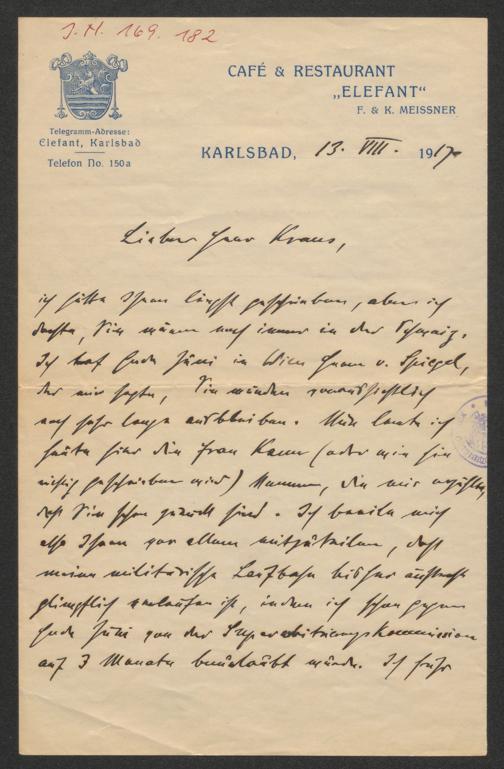 J.N. 169.182
CAFÉ & RESTAURANT
„ELEFANT“
F. & K. MEISSNER
Telegramm-Adresse:
Elefant, Karlsbad
Telefon No. 150a
KARLSBAD, 13. VIII. 1917
Lieber Herr Kraus,
ich hätte Ihnen längst geschrieben, aber ich
dachte, Sie wären noch immer in der Schweiz.
Ich traf Ende Juni in Wien Herrn v. Spiegel,
der mir sagte, Sie würden voraussichtlich
noch sehr lange ausbleiben. Nun lernte ich
heute hier die Frau Kann (oder wie sie
richtig geschrieben wird) kennen, die mir erzählte,
daß Sie schon zurück sind. Ich beeile mich
also Ihnen vor allem mitzuteilen, daß
meine militärische Laufbahn bisher äußerst
glimpflich verlaufen ist, indem ich schon gegen
Ende Juni von der Superarbitrierungskommission
auf 3 Monate beurlaubt wurde. Ich fuhr